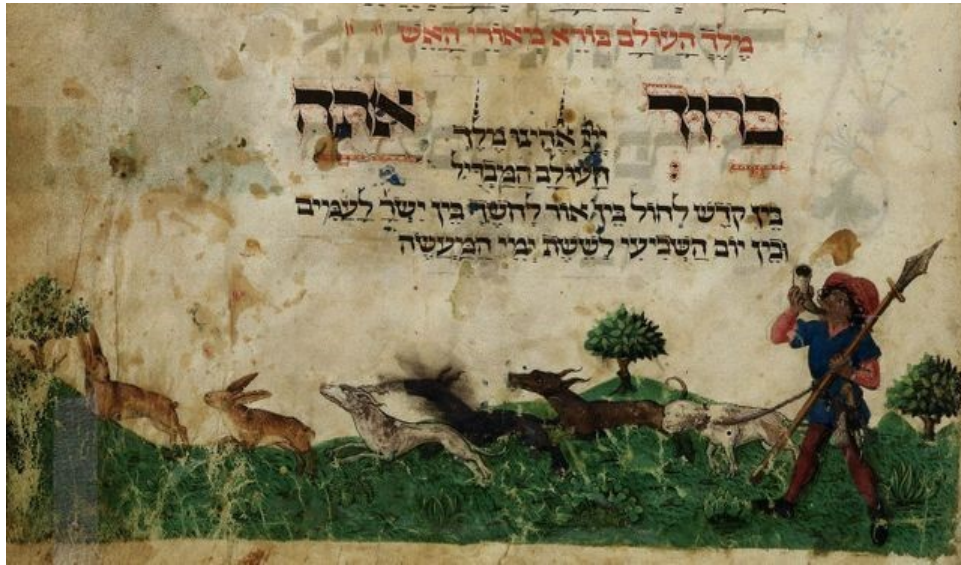 מֶלֶךְ הָעוֹלָם בּוֹרֵא מְאוֹרֵי הָאֵשׁ
בָּרוּךְ אַתָּה
יְיָ אֱלֹהֵינוּ מֶלֶךְ
הָעוֹלָם הַמַּבְדִּיל
בֵּין קֹדֶשׁ לְחוֹל בֵּין אוֹר לְחֹשֶׁךְ בֵּין יִשְׂרָ לָעַמִּיים
וּבֵין יוֹם הַשְּׁבִיעִי לְשֵׁשֶׁת יְמֵי הַמַּעֲשֶׂה